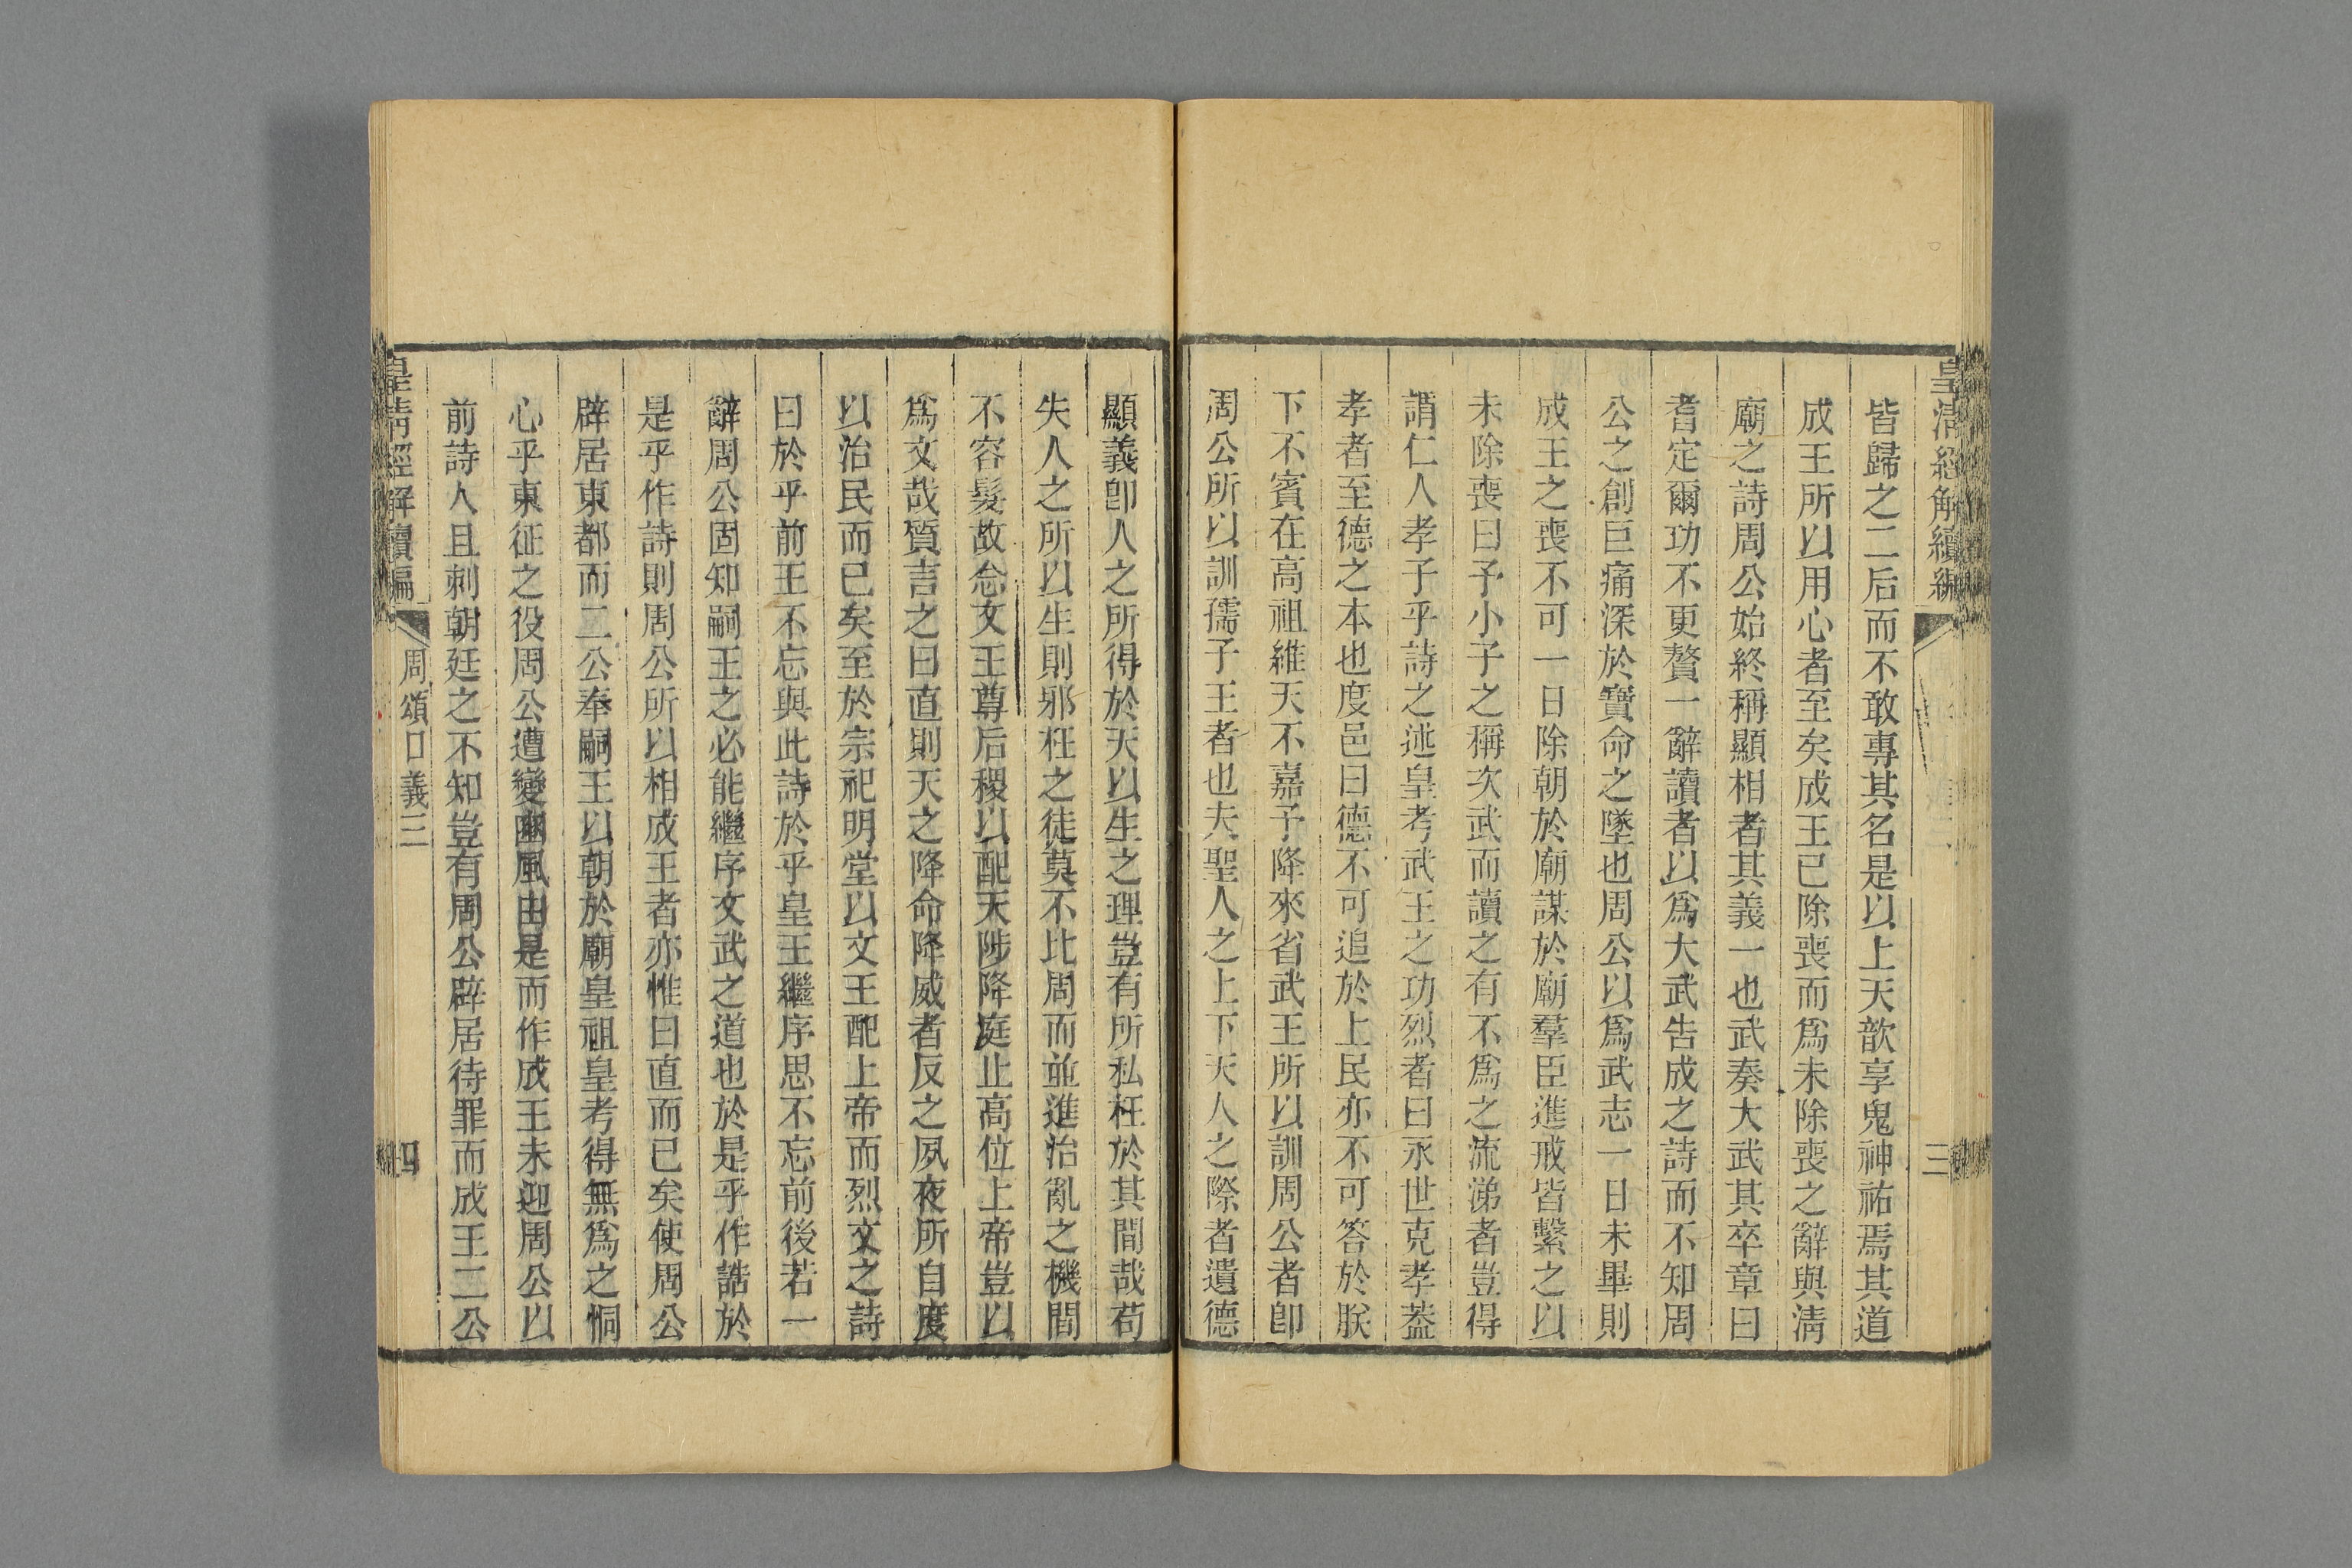 皇清經解續編
三
皆歸之二后而不敢專其名是以上天歆享鬼神祐焉其道
成王所以用心者至矣成王已除喪而爲未除喪之辭與淸
廟之詩周公始終稱顯相者其義一也武奏大武其卒章曰
耆定爾功不更贅一辭讀者以爲大武告成之詩而不知周
公之創巨痛深於寶命之墜也周公以爲武志一日未畢則
成王之喪不可一日除朝於廟謀於廟羣臣進戒皆繫之以
未除喪曰予小子之稱次武而讀之有不爲之流涕者豈得
謂仁人孝子乎詩之述皇考武王之功烈者曰永世克孝葢
孝者至德之本也度邑曰德不可追於上民亦不可答於朕
下不賓在高祖維天不嘉予降來省武王所以訓周公者卽
周公所以訓孺子王者也夫聖人之上下天人之際者遺德
顯義卽人之所得於天以生之理豈有所私枉於其間哉苟
失人之所以生則邪枉之徒莫不比周而並進治亂之機間
不容髮故念文王尊后稷以配天陟降庭止高位上帝豈以
爲文哉質言之曰直則天之降命降威者反之夙夜所自度
以治民而已矣至於宗祀明堂以文王配上帝而烈文之詩
曰於乎前王不忘與此詩於乎皇王繼序思不忘前後若一
辭周公固知嗣王之必能繼序文武之道也於是乎作誥於
是乎作詩則周公所以相成王者亦惟曰直而已矣使周公
辟居東都而二公奉嗣王以朝於廟皇祖皇考得無爲之恫
心乎東征之役周公遭變豳風由是而作成王未迎周公以
前詩人且刺朝廷之不知豈有周公辟居待罪而成王二公
皇清經解續編
周頌口義三
四